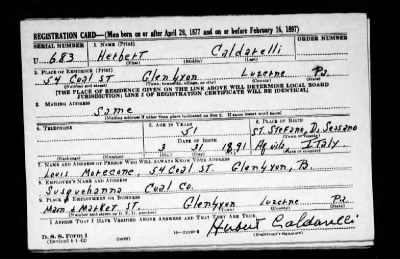 REGISTRATION CARD—(Men born on or after April 28, 1877 and on or before February 16, 1897)
SERIAL NUMBER 1. NAME (Print) ORDER NUMBER
U 683 Herbert Caldarelli
(First) (Middle) (Last)
2. PLACE OF RESIDENCE (Print)
54 Coal ST Glenlyon Luzerne Pa
(Number and street) (Town, township, village, or city) (County) (State)
[THE PLACE OF RESIDENCE GIVEN ON THE LINE ABOVE WILL DETERMINE LOCAL BOARD
JURISDICTION; LINE 2 OF REGISTRATION CERTIFICATE WILL BE IDENTICAL]
3. MAILING ADDRESS
Same
[Mailing address if other than place indicated on line 2. If same insert word same]
4. TELEPHONE 5. AGE IN YEARS 6. PLACE OF BIRTH
51 ST. Stefano, Di Sessano
DATE OF BIRTH (Town or county)
3 31 1891 Aquila, Italy
(Exchange) (Number) (Mo.) (Day) (Yr.) (State or country)
7. NAME AND ADDRESS OF PERSON WHO WILL ALWAYS KNOW YOUR ADDRESS
Louis 54 Coal ST. Glenlyon,
8. EMPLOYER'S NAME AND ADDRESS
Susquehanna Coal Co.
9. PLACE OF EMPLOYMENT OR BUSINESS
Main & Market ST Glenlyon Luzerne Pa
(Number and street or R. F. D. number) (Town) (County) (State)
I AFFIRM THAT I HAVE VERIFIED ABOVE ANSWERS AND THAT THEY ARE TRUE.
D. S. S. Form 1 Herbert Caldarelli
(Revised 4-1-42) (over) (Registrant's signature)